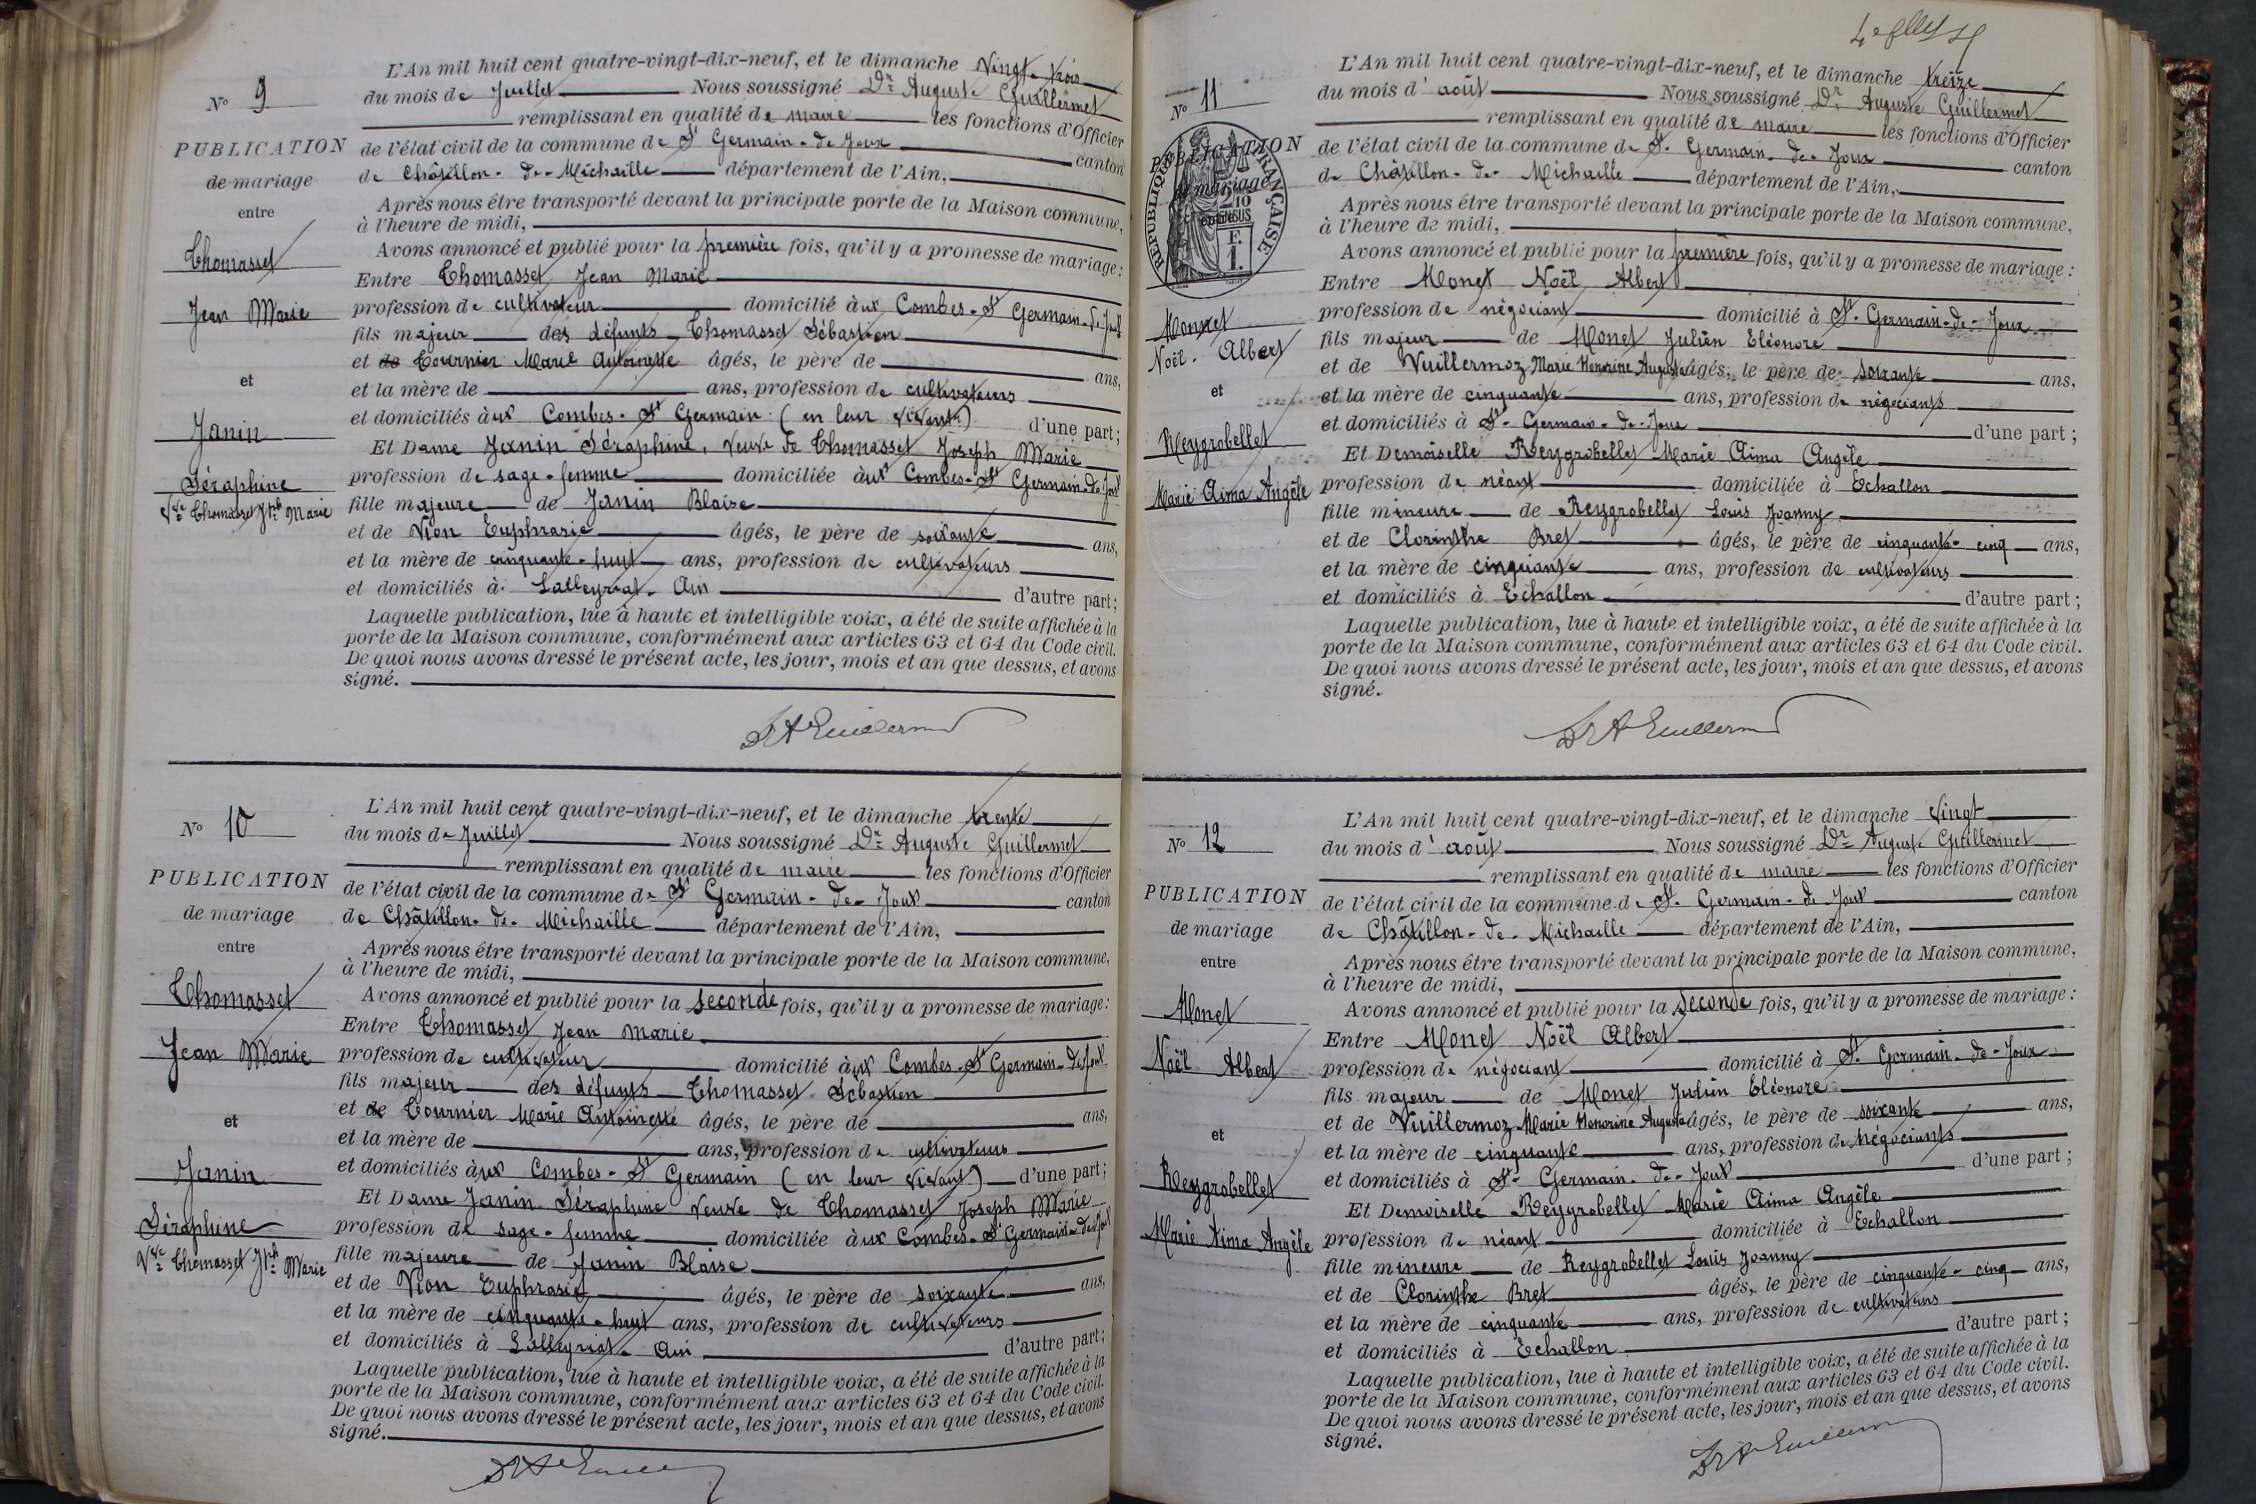 L'An mil huit cent quatre-vingt-dix-neuf, et le dimanche Vingt-trois
N° 9
du mois de Juillet Nous soussigné Dr Auguste Guillermet
remplissant en qualité de maire les fonctions d'Officier
PUBLICATION
de l'état civil de la commune de St Germain-de-Joux canton
de mariage
de Châtillon-de-Michaille département de l'Ain,
entre
Après nous être transporté devant la principale porte de la Maison commune,
à l'heure de midi,
Thomasset
Avons annoncé et publié pour la première fois, qu'il y a promesse de mariage:
Entre Thomasset Jean Marie
Jean Marie
profession de cultivateur domicilié aux Combes-St Germain-de-Joux
fils majeur des défunts Thomasset Sébastien
et de Tournier Marie Antoinette âgés, le père de ans,
et
et la mère de ans, profession de cultivateurs
et domiciliés aux Combes-St Germain (en leur vivant) d'une part;
Janin
Et Dame Janin Séraphine, veuve de Thomasset Joseph Marie
Séraphine
profession de sage-femme domiciliée aux Combes-St Germain-de-Joux
Vve Thomasset Jph Marie
fille majeure de Janin Blaise
et de Vion Euphrasie âgés, le père de soixante ans,
et la mère de cinquante-huit ans, profession de cultivateurs
et domiciliés à Lalleyriat-Ain d'autre part;
Laquelle publication, lue à haute et intelligible voix, a été de suite affichée à la
porte de la Maison commune, conformément aux articles 63 et 64 du Code civil.
De quoi nous avons dressé le présent acte, les jour, mois et an que dessus, et avons
signé.
Dr A Guillermet
L'An mil huit cent quatre-vingt-dix-neuf, et le dimanche trente
N° 10
du mois de Juillet Nous soussigné Dr Auguste Guillermet
remplissant en qualité de maire les fonctions d'Officier
PUBLICATION
de l'état civil de la commune de St Germain-de-Joux canton
de mariage
de Châtillon-de-Michaille département de l'Ain,
entre
Après nous être transporté devant la principale porte de la Maison commune,
à l'heure de midi,
Thomasset
Avons annoncé et publié pour la seconde fois, qu'il y a promesse de mariage:
Entre Thomasset Jean Marie
Jean Marie
profession de cultivateur domicilié aux Combes-St Germain-de-Joux
fils majeur des défunts Thomasset Sébastien
et
et de Tournier Marie Antoinette âgés, le père de ans,
et la mère de ans, profession de cultivateurs
et domiciliés aux Combes-St Germain (en leur vivant) d'une part;
Janin
Et Dame Janin Séraphine veuve de Thomasset Joseph Marie
Séraphine
profession de sage-femme domiciliée aux Combes-St Germain-de-Joux
Vve Thomasset Jph Marie
fille majeure de Janin Blaise
et de Vion Euphrasie âgés, le père de soixante ans,
et la mère de cinquante-huit ans, profession de cultivateurs
et domiciliés à Lalleyriat-Ain d'autre part;
Laquelle publication, lue à haute et intelligible voix, a été de suite affichée à la
porte de la Maison commune, conformément aux articles 63 et 64 du Code civil.
De quoi nous avons dressé le présent acte, les jour, mois et an que dessus, et avons
signé.
Dr A Guillermet
L'An mil huit cent quatre-vingt-dix-neuf, et le dimanche treize
N° 11
du mois d'août Nous soussigné Dr Auguste Guillermet
remplissant en qualité de maire les fonctions d'Officier
PUBLICATION
de l'état civil de la commune de St-Germain-de-Joux canton
de mariage
RÉPUBLIQUE FRANÇAISE
2/10
EN SUS
F.
1.
de Châtillon-de-Michaille département de l'Ain,
Après nous être transporté devant la principale porte de la Maison commune,
à l'heure de midi,
Avons annoncé et publié pour la première fois, qu'il y a promesse de mariage:
Entre Monet Noël Albert
profession de négociant domicilié à St-Germain-de-Joux
Monet
fils majeur de Monet Julien Eléonore
Noël-Albert
et de Vuillermoz Marie Honorine Augusta âgés, le père de soixante ans,
et
et la mère de cinquante ans, profession de négociants
et domiciliés à St-Germain-de-Joux d'une part;
Reygrobellet
Et Demoiselle Reygrobellet Marie Aima Angèle
Marie Aima Angèle
profession de néant domiciliée à Echallon
fille mineure de Reygrobellet Louis Joanny
et de Clorinthe Bret âgés, le père de cinquante-cinq ans,
et la mère de cinquante ans, profession de cultivateurs
et domiciliés à Echallon d'autre part;
Laquelle publication, lue à haute et intelligible voix, a été de suite affichée à la
porte de la Maison commune, conformément aux articles 63 et 64 du Code civil.
De quoi nous avons dressé le présent acte, les jour, mois et an que dessus, et avons
signé.
Dr A Guillermet
L'An mil huit cent quatre-vingt-dix-neuf, et le dimanche vingt
N° 12
du mois d'août Nous soussigné Dr Auguste Guillermet
remplissant en qualité de maire les fonctions d'Officier
PUBLICATION
de l'état civil de la commune de St-Germain-de-Joux canton
de mariage
de Châtillon-de-Michaille département de l'Ain,
entre
Après nous être transporté devant la principale porte de la Maison commune,
à l'heure de midi,
Monet
Avons annoncé et publié pour la seconde fois, qu'il y a promesse de mariage:
Entre Monet Noël Albert
Noël Albert
profession de négociant domicilié à St-Germain-de-Joux
fils majeur de Monet Julien Eléonore
et
et de Vuillermoz Marie Honorine Augusta âgés, le père de soixante ans,
et la mère de cinquante ans, profession de négociants
Reygrobellet
et domiciliés à St-Germain-de-Joux d'une part;
Et Demoiselle Reygrobellet Marie Aima Angèle
Marie Aima Angèle
profession de néant domiciliée à Echallon
fille mineure de Reygrobellet Louis Joanny
et de Clorinthe Bret âgés, le père de cinquante-cinq ans,
et la mère de cinquante ans, profession de cultivateurs
et domiciliés à Echallon d'autre part;
Laquelle publication, lue à haute et intelligible voix, a été de suite affichée à la
porte de la Maison commune, conformément aux articles 63 et 64 du Code civil.
De quoi nous avons dressé le présent acte, les jour, mois et an que dessus, et avons
signé.
Dr A Guillermet